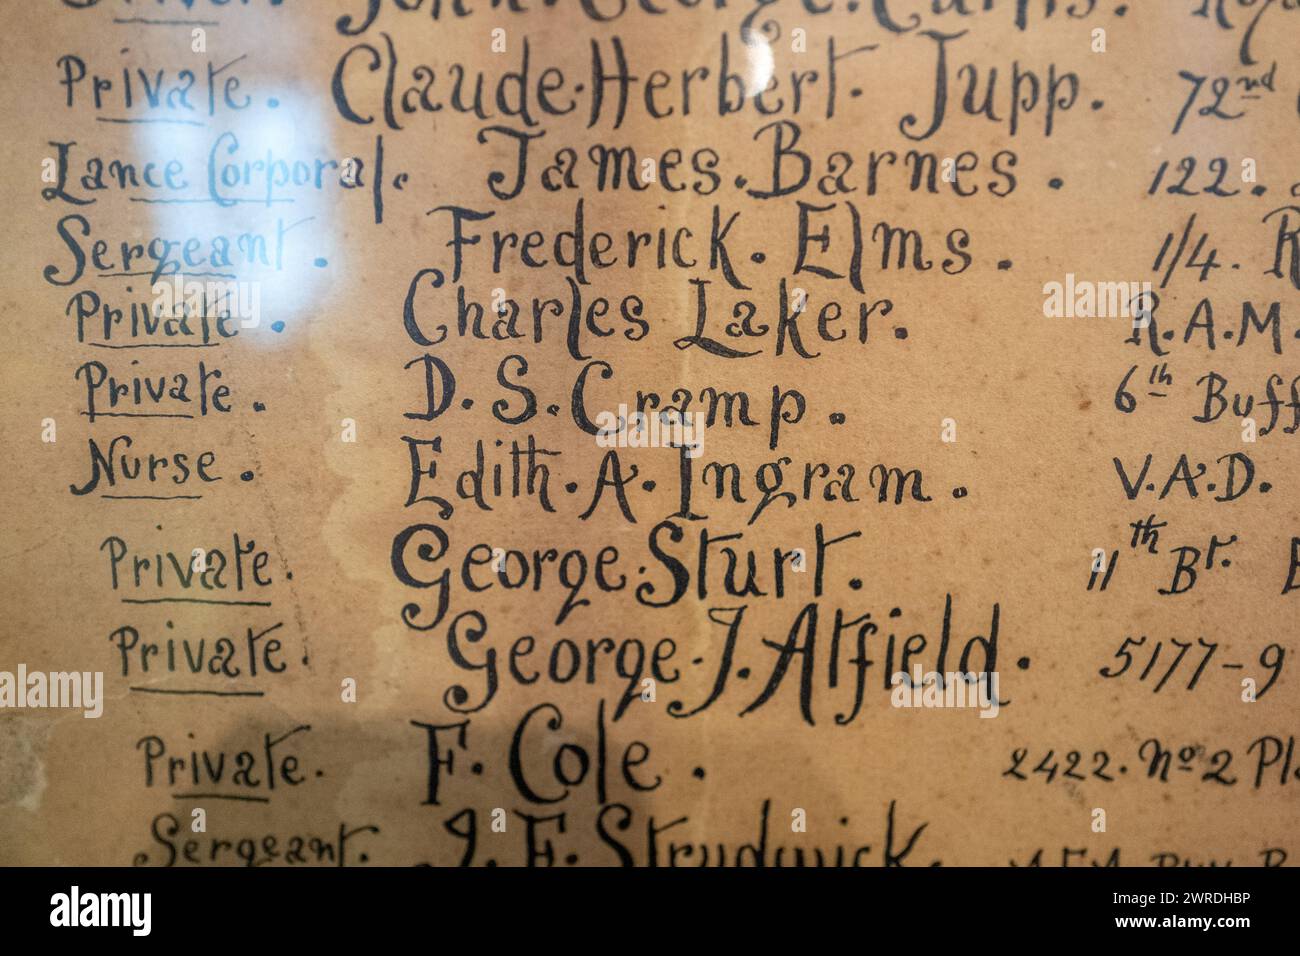 John. George. Curtis.
Private. Claude. Herbert. Jupp. 72nd
Lance Corporal. James. Barnes. 122.
Sergeant. Frederick. Elms. 1/4. R
Private. Charles Laker. R.A.M.
Private. D. S. Cramp. 6th Buff
Nurse. Edith. A. Ingram. V.A.D.
Private. George. Sturt. 11th Bt.
Private. George. J. Atfield. 5177-9
Private. F. Cole. 2422. No 2 Pl
Sergeant. J. F. Strudwick.
alamy
Image ID: 2WRDHBP
www.alamy.com